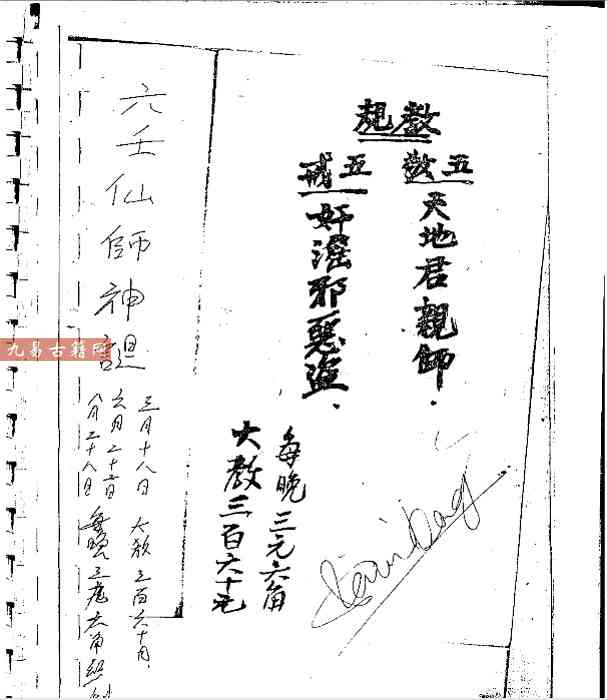 教規
五敬
天地君親師．
五戒
奸淫邪惡盜．
每晚三元六角
大教三百六十元
六壬仙師神誕
三月十八日
六月二十六日
八月二十八日
大教三百六十
每晚三元六角
九易古籍网